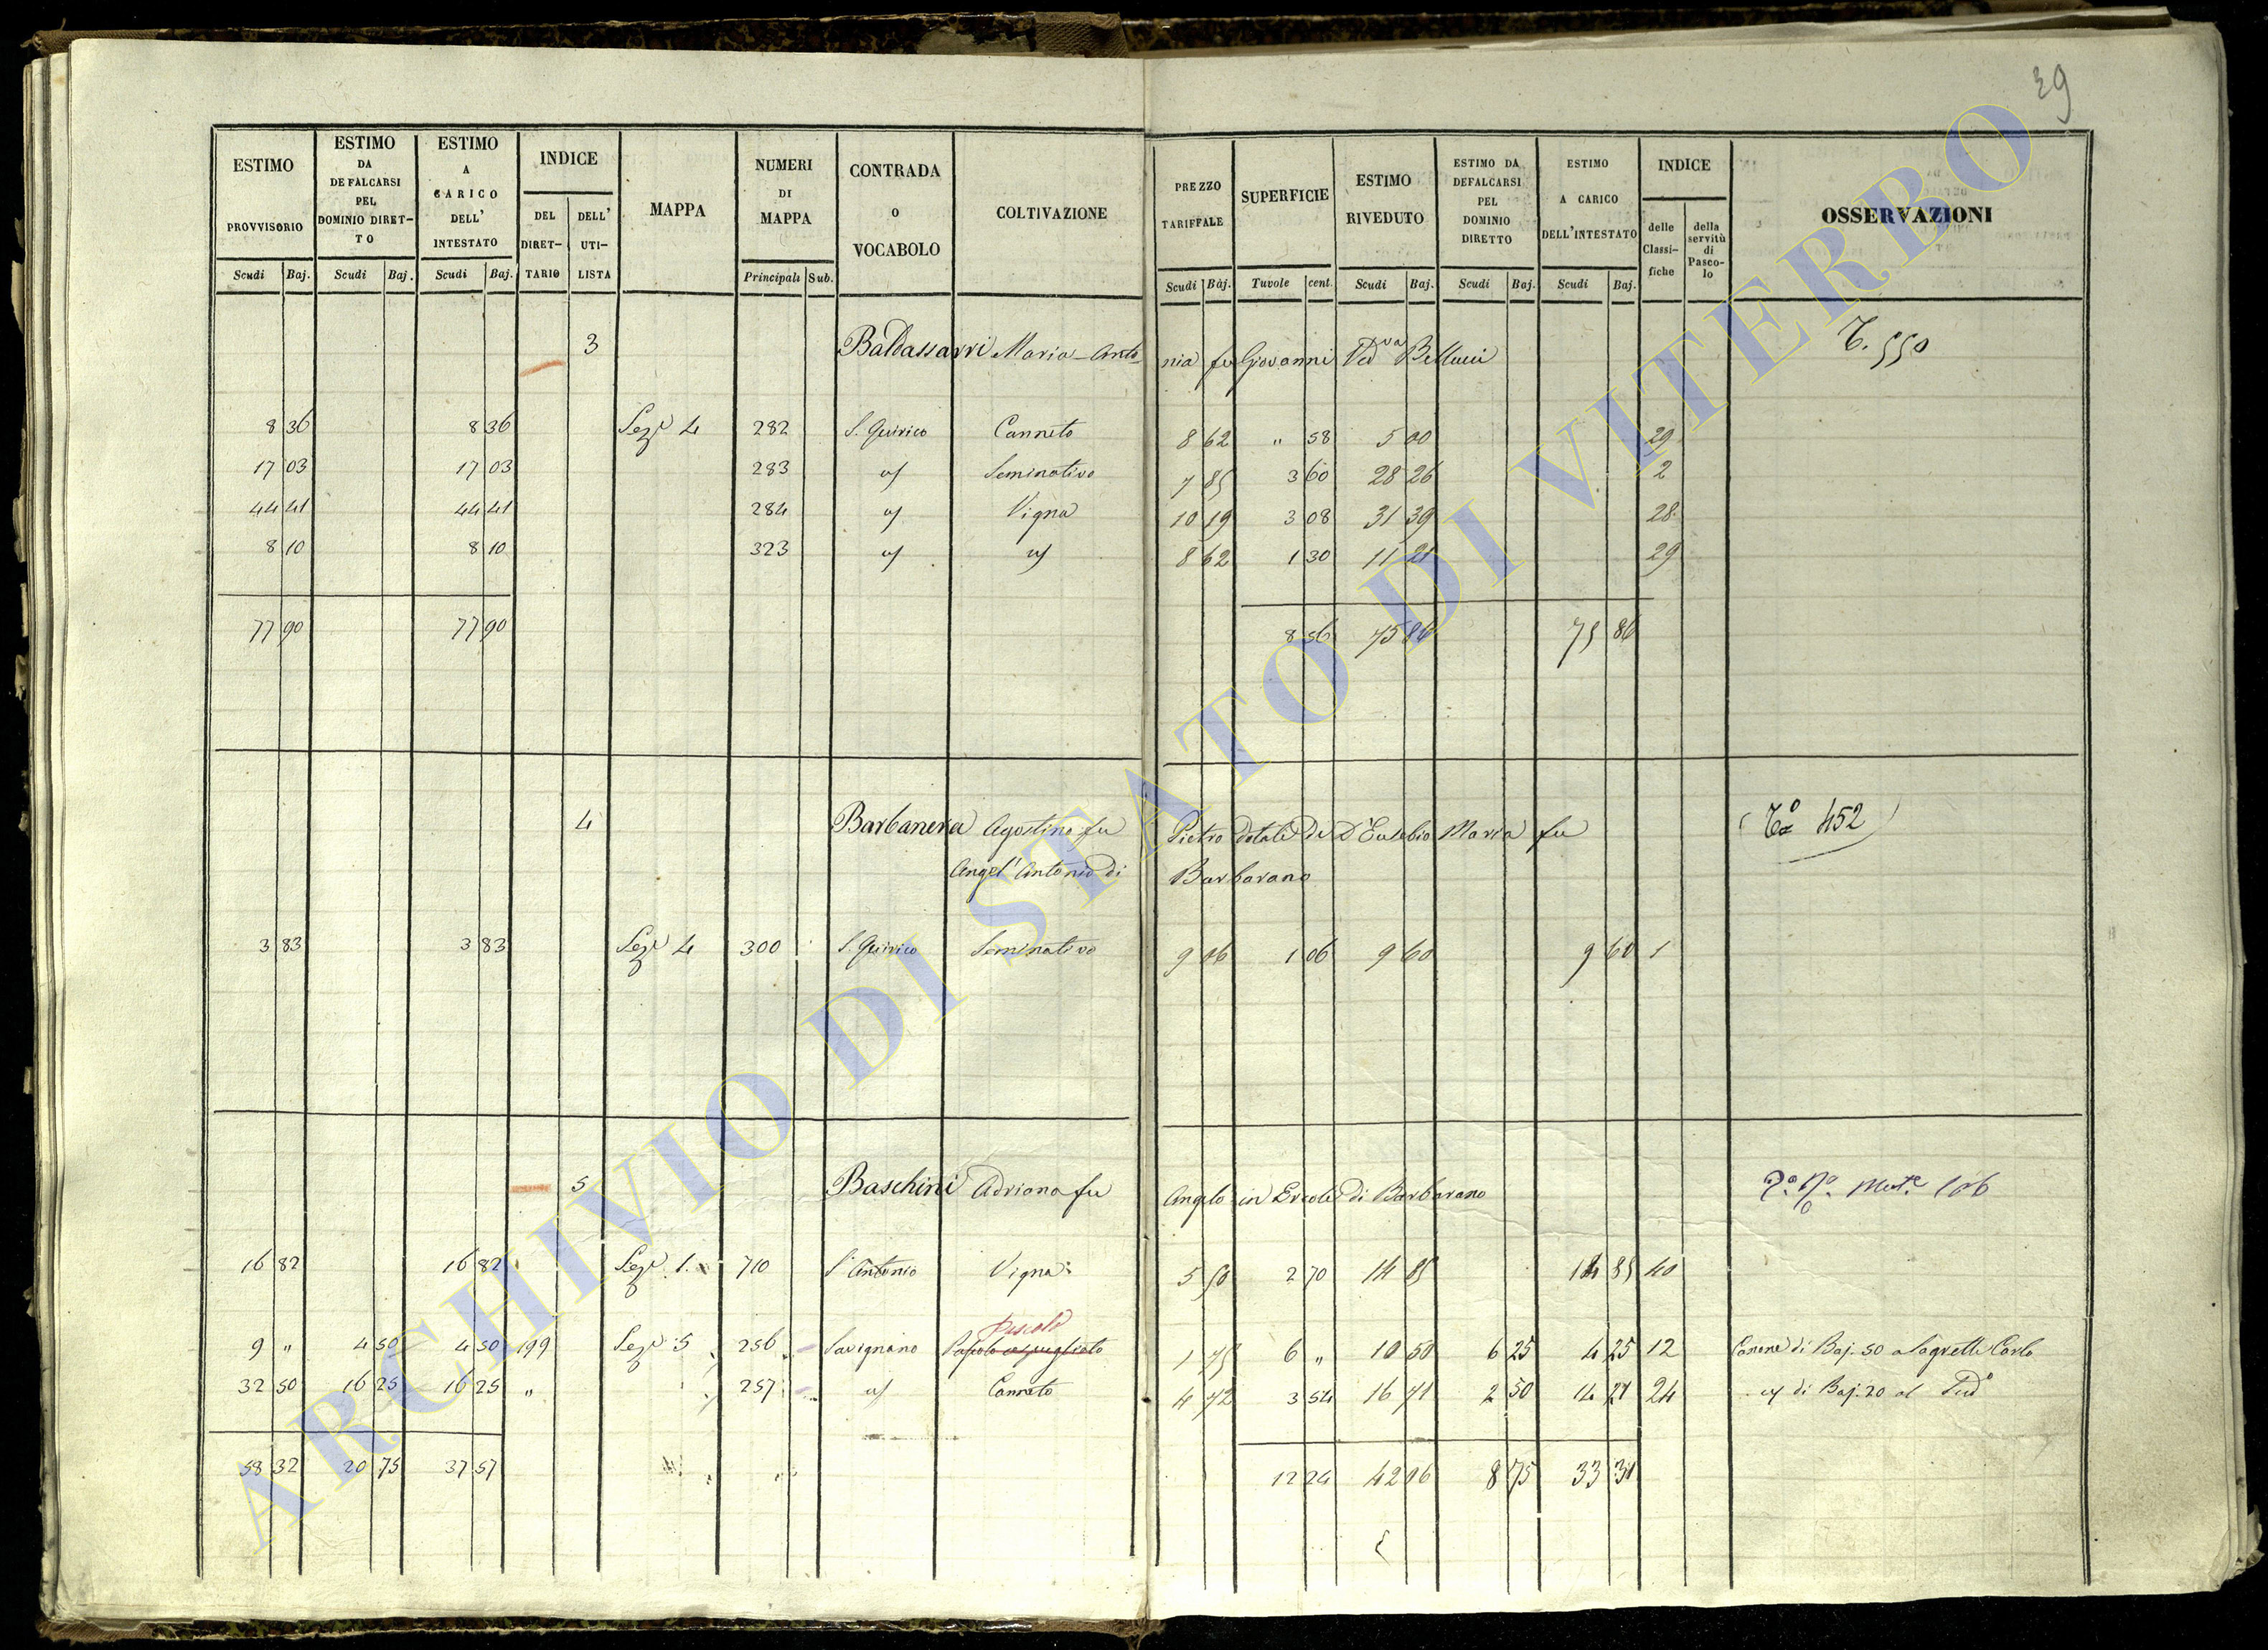 39
ESTIMO PROVVISORIO Scudi Baj.
ESTIMO DA DEFALCARSI PEL DOMINIO DIRETTO Scudi Baj.
ESTIMO A CARICO DELL' INTESTATO Scudi Baj.
INDICE DEL DIRETTARIO DELL' UTILISTA
MAPPA
NUMERI DI MAPPA Principali Sub.
CONTRADA O VOCABOLO
COLTIVAZIONE
PREZZO TARIFFALE Scudi Baj.
SUPERFICIE Tavole cent.
ESTIMO RIVEDUTO Scudi Baj.
ESTIMO DA DEFALCARSI PEL DOMINIO DIRETTO Scudi Baj.
ESTIMO A CARICO DELL'INTESTATO Scudi Baj.
INDICE delle Classifiche della servitù di Pascolo
OSSERVAZIONI
3 Baldassarri Maria-Antonia fu Giovanni Ved.va Bellucci T. 550
8 36 8 36 Sez.e 4 282 S. Quirico Canneto 8 62 " 58 5 00 29
17 03 17 03 283 " Seminativo 7 85 3 60 28 26 2
44 41 44 41 284 " Vigna 10 19 3 08 31 39 28
8 10 8 10 323 " " 8 62 1 30 11 21 29
77 90 77 90 8 56 75 86 75 86
4 Barbanera Agostino fu Pietro dotale di D'Eusebio Maria fu (T.a 452)
Angel'Antonio di Barbarano
3 83 3 83 Sez.e 4 300 S. Quirico Seminativo 9 06 1 06 9 60 9 60 1
5 Baschini Adriana fu Angelo in Ercole di Barbarano 106
16 82 16 82 Sez.e 1. 710 S. Antonio Vigna 5 50 2 70 14 85 14 85 40
Pascolo
9 " 4 50 4 50 199 Sez.e 5 256 Savignano Pascolo cespugliato 1 75 6 " 10 50 6 25 4 25 12 Canone di Baj. 50 a Sagretti Carlo
32 50 16 25 16 25 " 257 " Canneto 4 72 3 54 16 71 2 50 14 21 24 " di Baj. 20 al Sud.o
58 32 20 75 37 57 12 24 42 06 8 75 33 31
ARCHIVIO DI STATO DI VITERBO